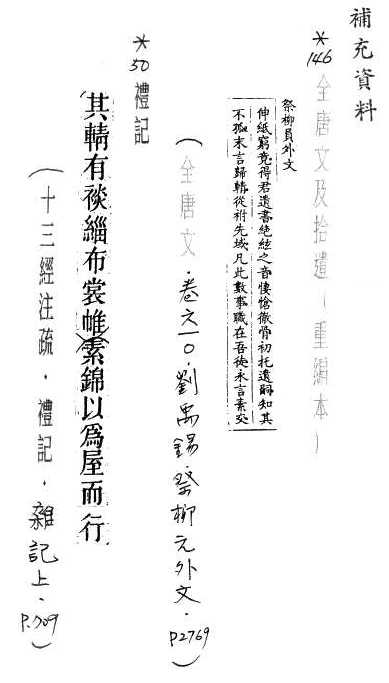 補充資料
*146 全唐文及拾遺(重編本)
祭柳員外文
伸紙窮竟得君遺書絕絃之音悽愴徹骨初托遺嗣知其
不孤末言歸輤從祔先域凡此數事職在吾徒永言素交
(全唐文.卷六一〇.劉禹錫.祭柳元外文.P2769)
*50 禮記
其輤有裧緇布裳帷素錦以爲屋而行
(十三經注疏.禮記.雜記上.P.709)